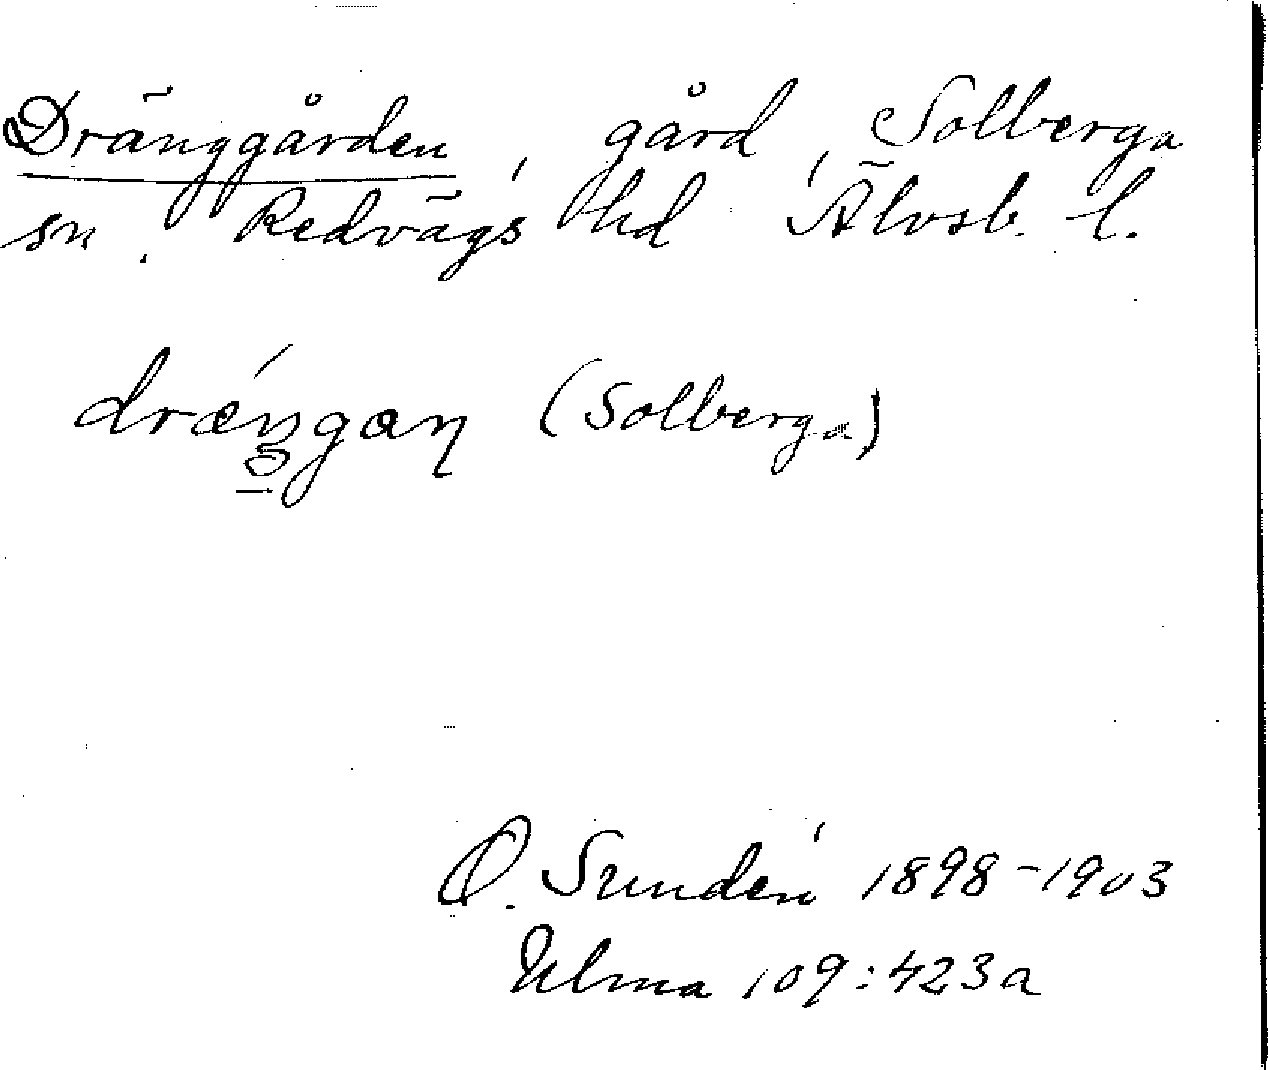 Dränggården, gård, Solberga
sn. Redvägs hd Älvsb. l.
(Solberga)
D. Sundén 1898-1903
Ulma 109:423a